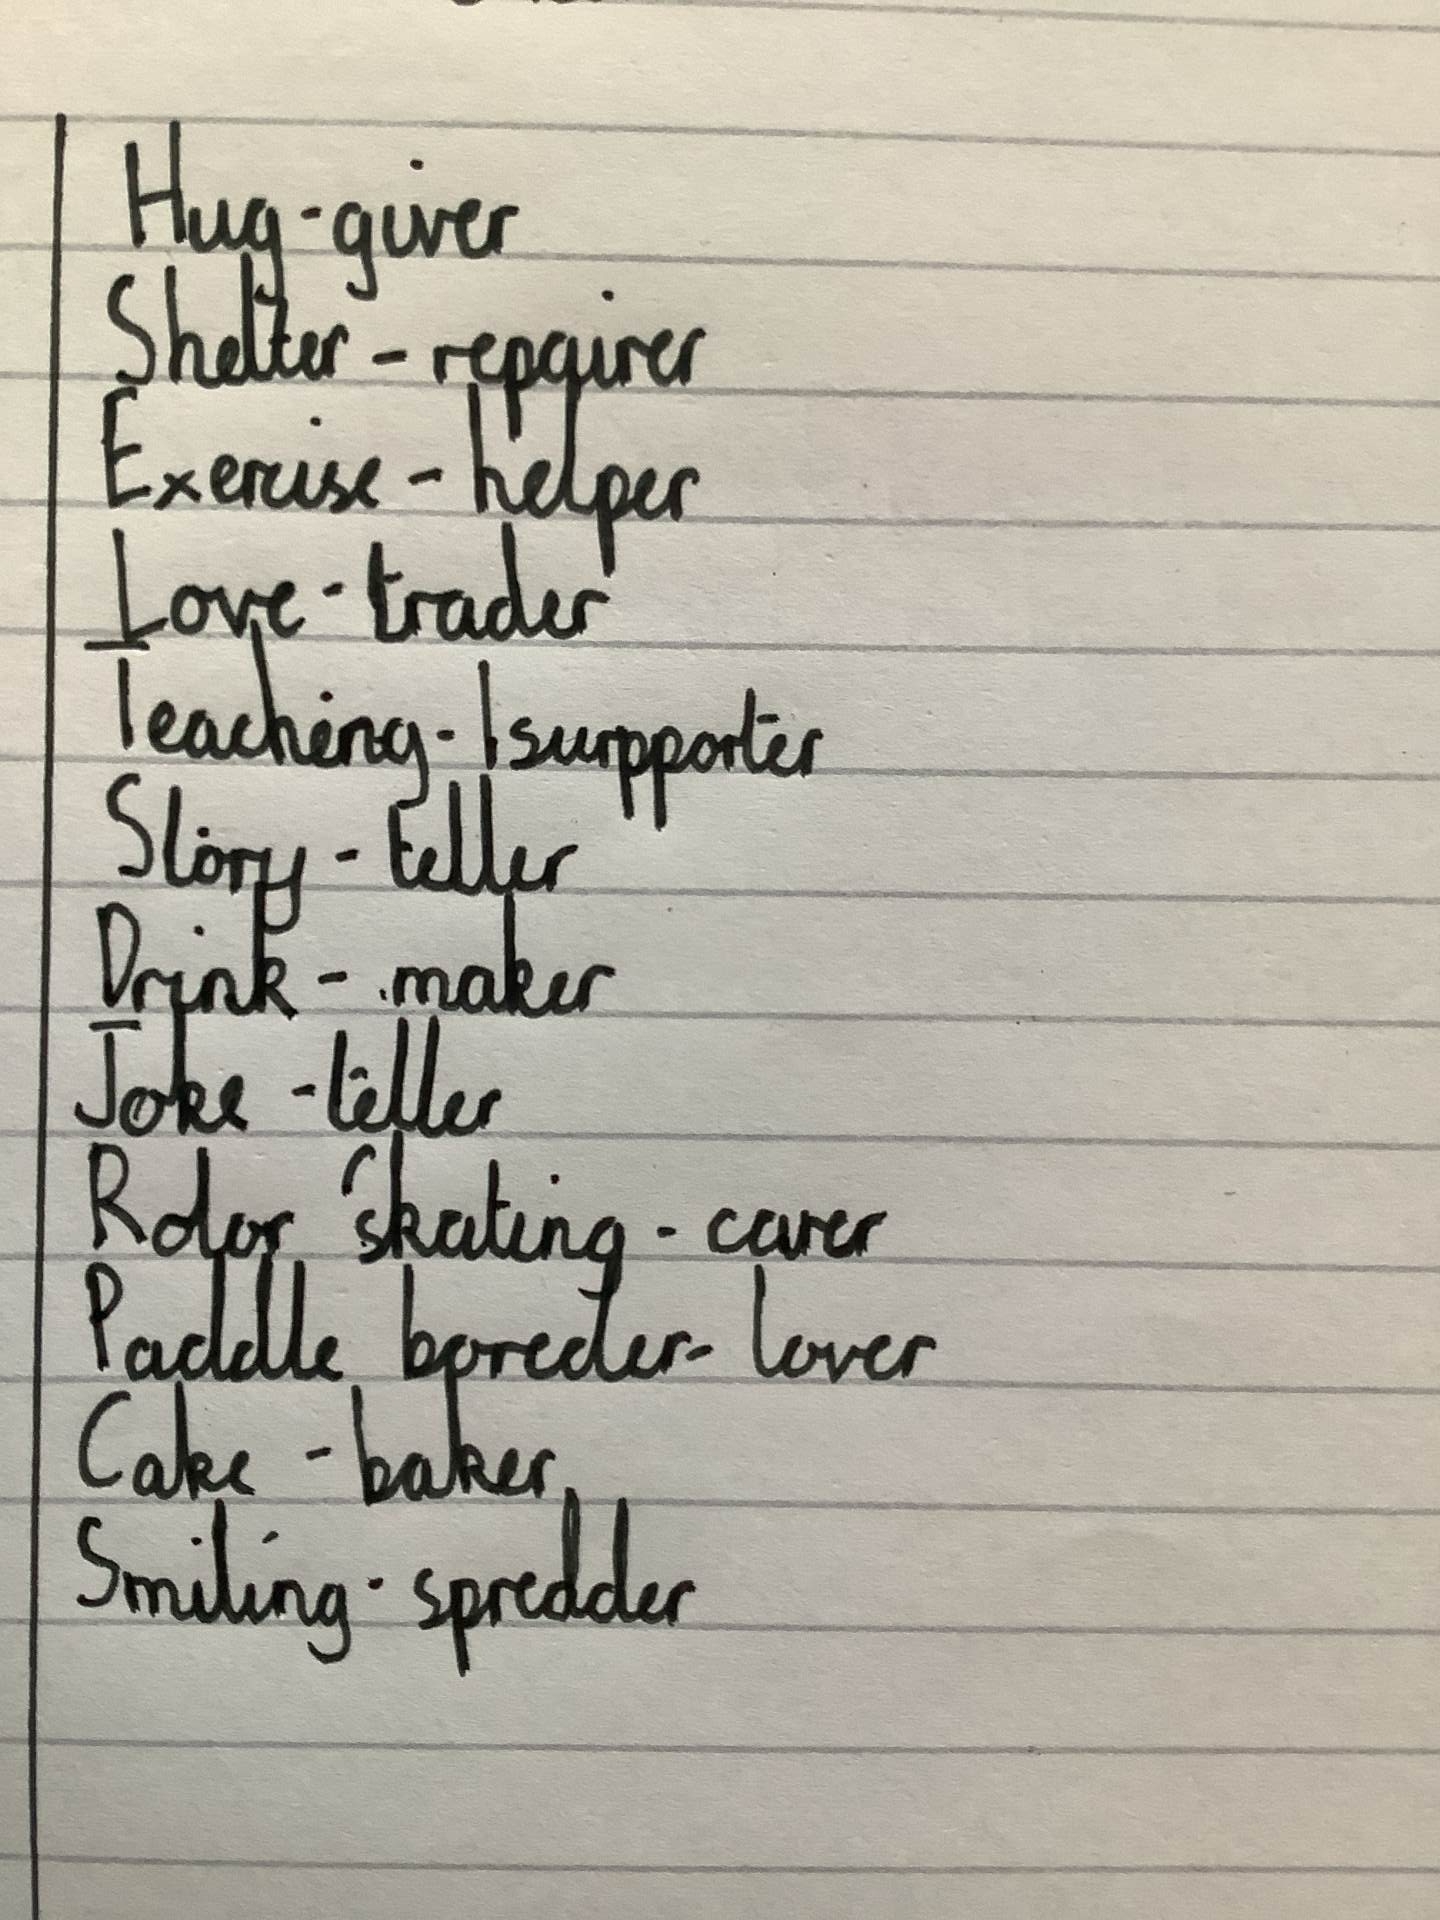 Hug-giver
Shelter - repairer
Exercise - helper
Love - trader
Teaching - surpporter
Story - teller
Drink - maker
Joke - teller
Rolor skating - carer
Paddle boreder - lover
Cake - baker
Smiling - spredder